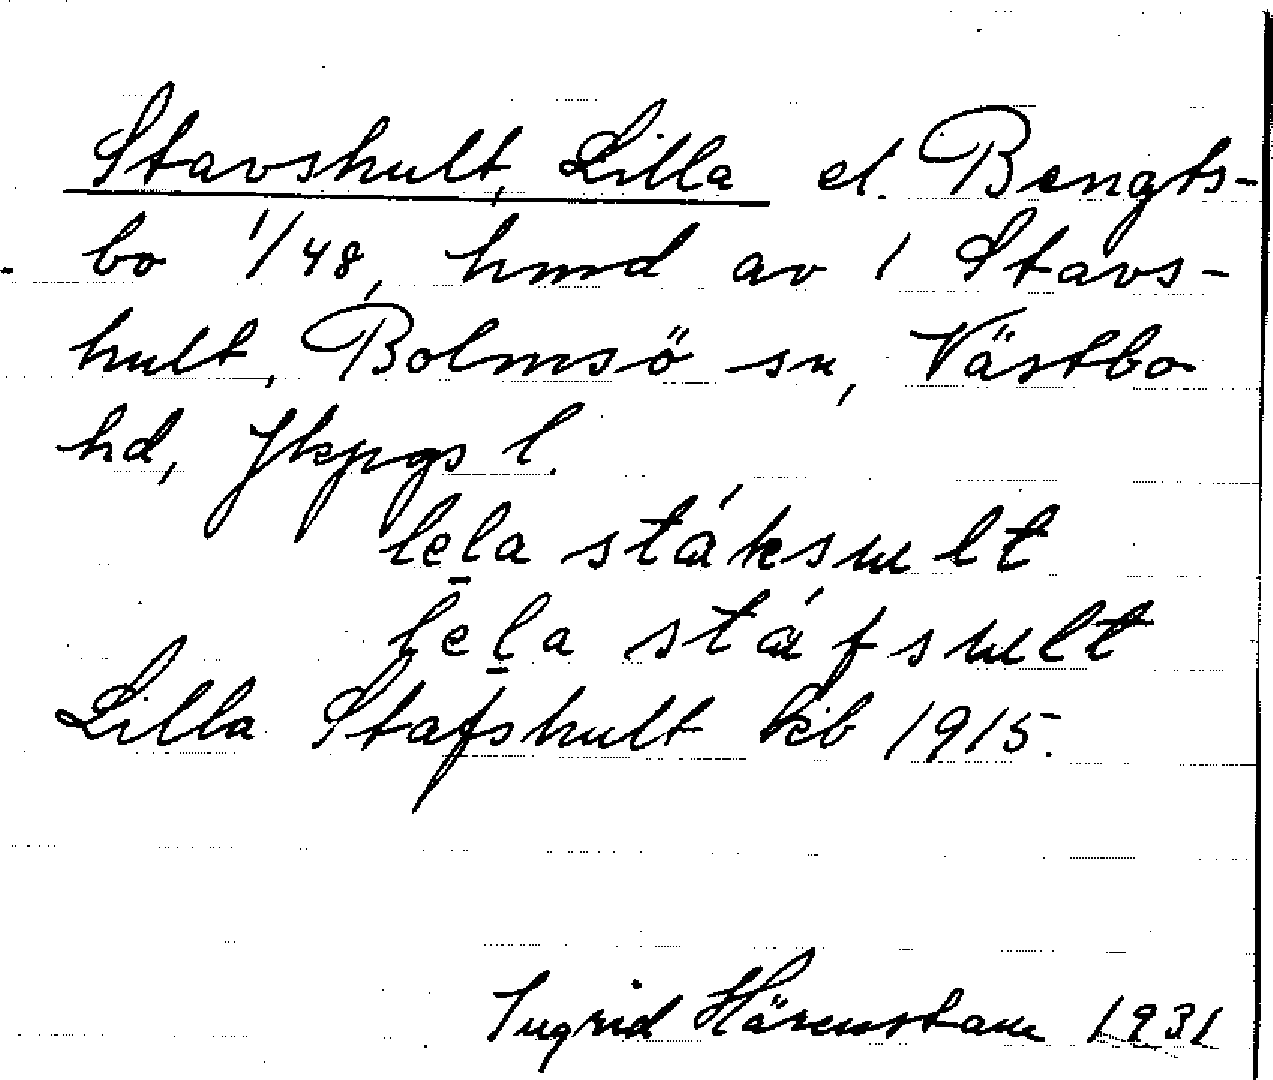 Stavshult, Lilla el. Bengts-
bo 1/48, hmd av 1 Stavs-
hult, Bolmsö sn, Västbo
hd, Jkpgs l.
lela stáksult
lela stáfsult
Lilla Stafshult kb 1915.
Ingrid Härenstam 1931